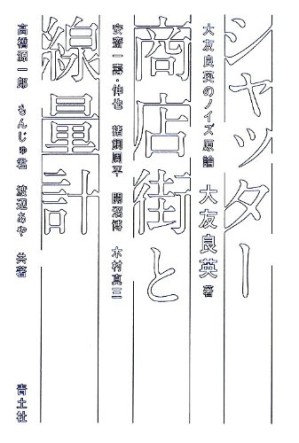 シャッター
大友良英のノイズ原論　大友良英 著
商店街と
安齋一壽・伸也　諸󠄀劔国平　開沼博　木村真三
線量計
高橋源一郎　もんじゅ君　渡辺あや　共著
青土社